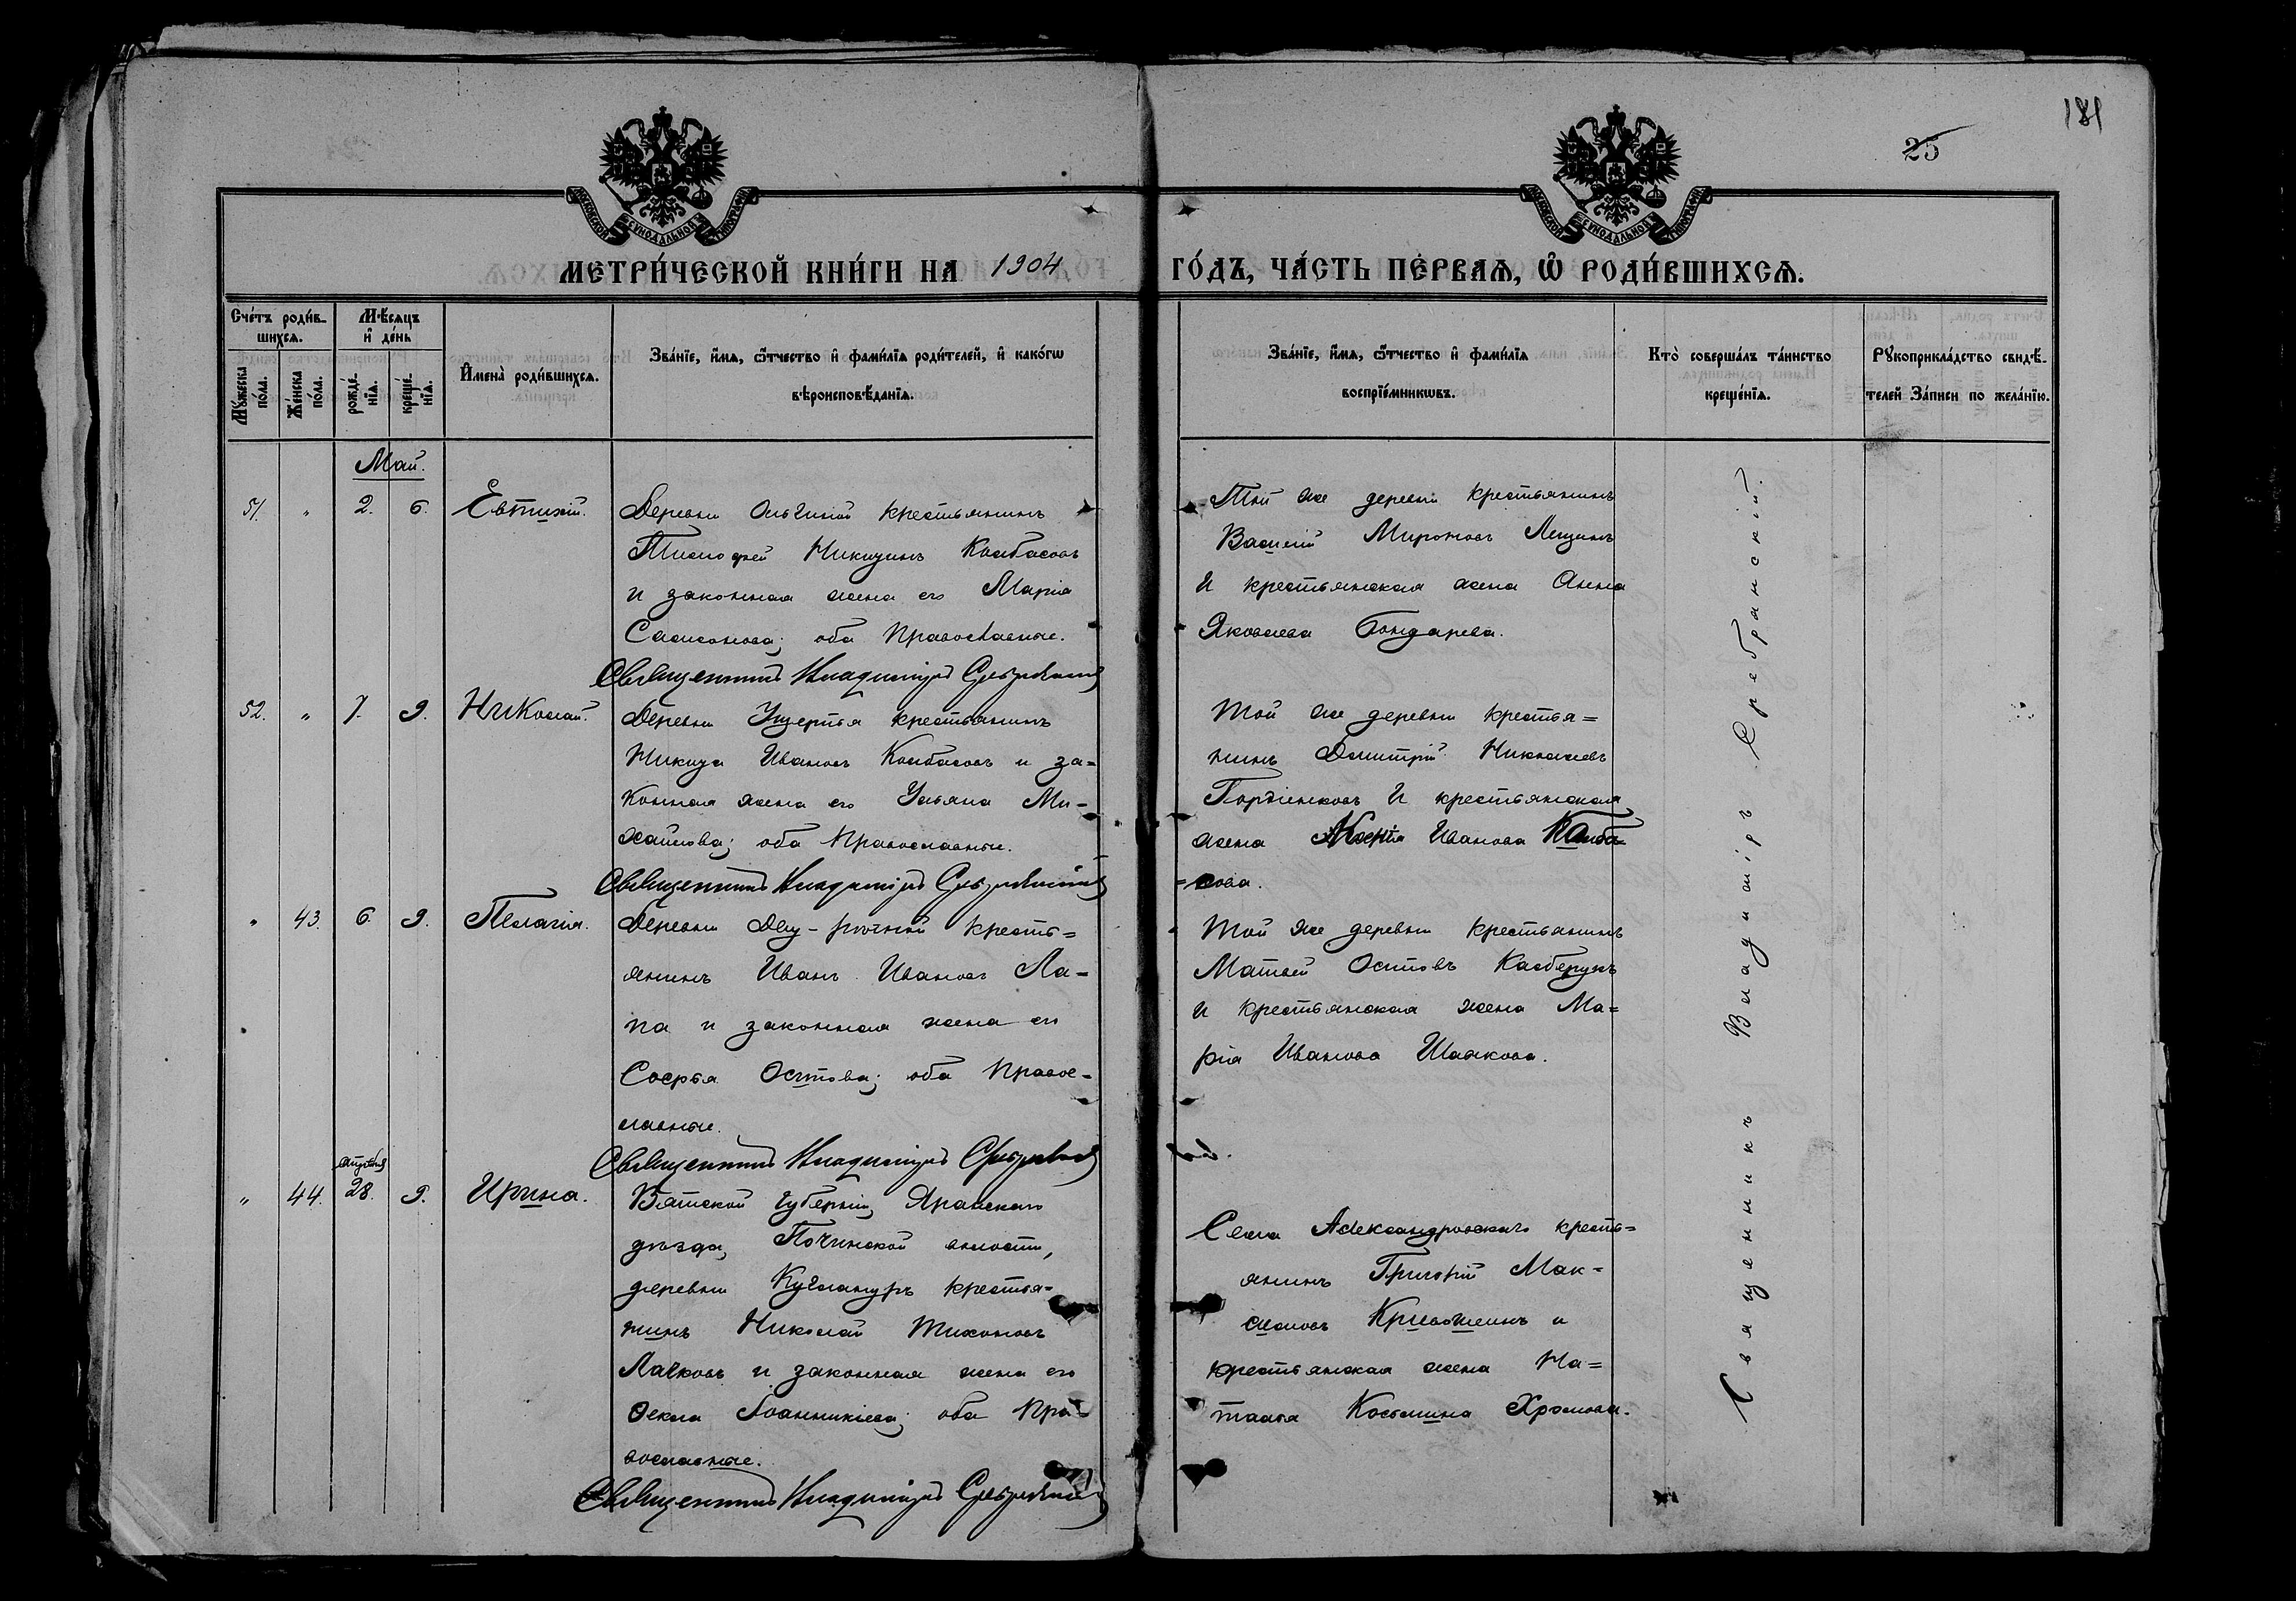 181
25
МОСКОВСКОЙ СѴНОДАЛЬНОЙ ТИПОГРАФІИ
МОСКОВСКОЙ СѴНОДАЛЬНОЙ ТИПОГРАФІИ
МЕТРИ́ЧЕСКОЙ КНИ́ГИ НА 1904 ГО́ДЪ, ЧА́СТЬ ПЕ́РВАѦ, Ѽ РОДИ́ВШИХСѦ.
Сче́тъ роди́в-
шихсѧ.
Мꙋ́жеска по́ла.
Же́нска по́ла.
Мѣ́сѧцъ
и҆ де́нь
рожде́-
нїѧ.
креще́-
нїѧ.
И҆мена̀ роди́вшихсѧ.
Зва́нїе, и҆́мѧ, ѻ҆́тчество и҆ фами́лїѧ роди́телей, и҆ како́гѡ
вѣроисповѣ́данїѧ.
Зва́нїе, и҆́мѧ, ѻ҆́тчество и҆ фами́лїѧ
воспрїе́мникѡвъ.
Кто̀ соверша́лъ та́инство
креще́нїѧ.
Рꙋкоприкла́дство свидѣ́-
телей За́писи по жела́нїю.
Май.
51. " 2. 6. Евтихій.
Деревни Ольгиной крестьянинъ
Тимофей Никитинъ Колбасовъ
и законная жена его Марія
Самсонова; оба Православные.
Священникъ Владиміръ Сребрянскій
Той же деревни крестьянинъ
Василій Мироновъ Лещинъ
и крестьянская жена Анна
Яковлева Бондарева.
52. " 7. 9. Николай.
Деревни крестьянинъ
Никита Ивановъ Колбасовъ и за=
конная жена его Ульяна Ми-
хайлова; оба Православные.
Священникъ Владиміръ Сребрянскій
Той же деревни крестья=
нинъ Димитрій Николаевъ
Гордіенковъ и крестьянская
жена Ксенія Иванова Колба=
=сова.
" 43. 6. 9. Пелагія.
Деревни Дву-рѣчной кресть=
янинъ Иванъ Ивановъ Ла-
па и законная жена его
Софья Осипова; оба Правос-
лавные.
Священникъ Владиміръ Сребрянскій
Той же деревни крестьянинъ
Матвей Осиповъ
и крестьянская жена Ма=
рія Иванова
" 44. Апрѣля 28. 9. Ирина.
Вятской губерніи, Яранскаго
уѣзда, Починской волости,
деревни Куглануръ крестья-
нинъ Николай Тихоновъ
Лачковъ и законная жена его
Ѳекла Іоанникіева; оба Пра-
вославные.
Священникъ Владиміръ Сребрянскій
Села Александровскаго кресть=
янинъ Григорій Мак-
симовъ Кривошеинъ и
крестьянская жена На=
талья Косьмина Хромова.
Священникъ Владиміръ Сребранскій.